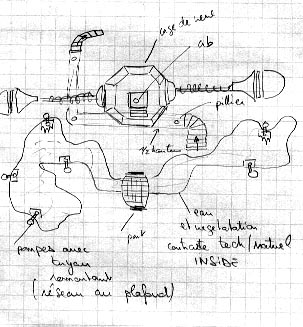 cage de verre
ab
pillier
1/2 hauteur
pont
eau
et vegetation
contraste tech/naturel
INSIDE
pompes avec
tuyau
remontant
(réseau au plafond)